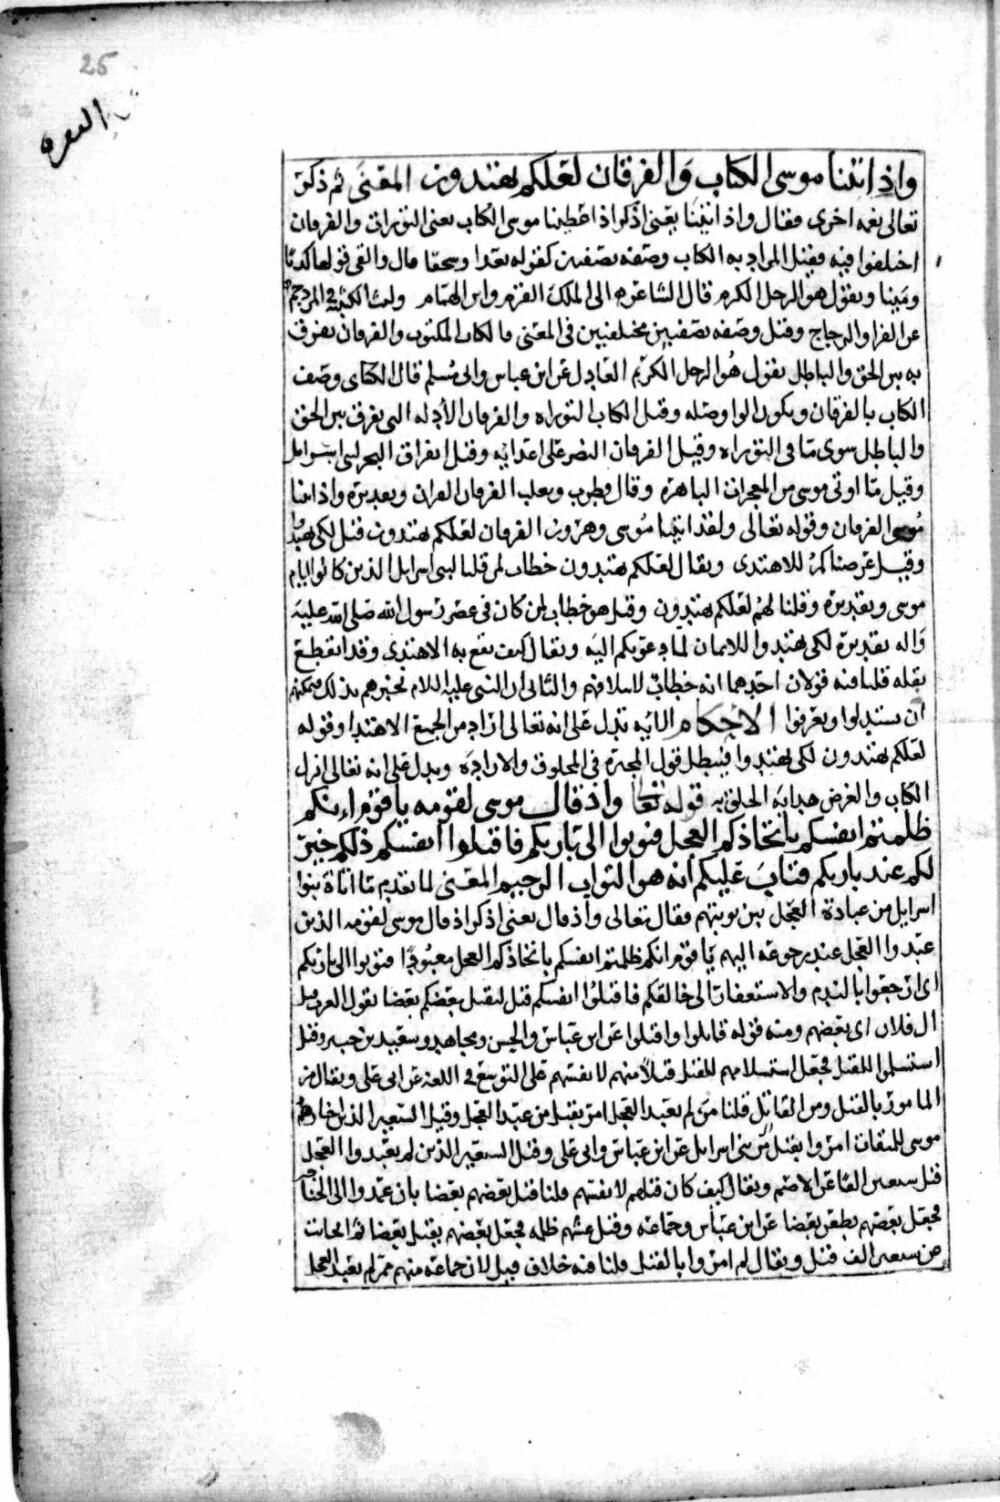 25
البقره
واذ اتينا موسى الكتاب والفرقان لعلكم تهتدون المعنى ثم ذكر
تعالى نعمه اخرى فقال واذ اتينا يعنى اذكر اذ اعطينا موسى الكتاب يعنى التوراة والفرقان
اختلفوا فيه فقيل المراد به الكتاب وصفه بصفتين كقوله بعدا وسحقا قال والفى قولها كذبا
ومينا ويقول هو الرجل الكريم قال الشاعر الى الملك القرم وابن الهمام وليث الكتيبة فى المزدحم
عن الفرا والزجاج وقيل وصفه بصفتين مختلفتين فى المعنى فالكتاب المكتوب والفرقان يفرق
به بين الحق والباطل يقول هو الرجل الكريم العادل عن ابن عباس وابى مسلم قال الكسائى وصف
الكتاب بالفرقان ويكون الواو صله وقيل الكتاب التوراه والفرقان الأدله التى يفرق بين الحق
والباطل سوى ما فى التوراه وقيل الفرقان النصر على اعدائه وقيل انفراق البحر لبنى اسرايل
وقيل ما اوتى موسى من المعجزات الباهره وقال قطرب وثعلب الفرقان القران وتقديره واذ اتينا
موسى الفرقان وقوله تعالى ولقد اتينا موسى وهرون الفرقان لعلكم تهتدون قيل لكى تهتدوا
وقيل عرضناكم للاهتدى ويقال لعلكم تهتدون خطاب لمن قلنا لبنى اسرايل الذين كانوا ايام
موسى وتقديره وقلنا لهم لعلكم تهتدون وقيل هو خطاب لمن كان فى عصر رسول الله صلى الله عليه
واله تقديره لكى تهتدوا للايمان لما دعوتكم اليه ويقال كيف يقع به الاهتدى وقد انقطع
نقله قلنا فيه قولان احدهما انه خطاب لاسلافهم والثانى ان النبى عليه السلام تخبرهم بذلك فيمكنهم
ان يستدلوا ويعرفوا الاحكام الايه تدل على انه تعالى اراد من الجميع الاهتدا وقوله
لعلكم تهتدون لكى تهتدوا فيبطل قول المجبرة فى المخلوق والاراده ويدل على انه تعالى انزل
الكتاب والغرض هداية الخلق به قوله تعالى واذ قال موسى لقومه يا قوم انكم
ظلمتم انفسكم باتخاذكم العجل فتوبوا الى باريكم فاقتلوا انفسكم ذلكم خير
لكم عند باريكم فتاب عليكم انه هو التواب الرحيم المعنى لما تقدم ما اتاه بنوا
اسرايل من عبادة العجل بين توبتهم فقال تعالى واذ قال يعنى اذكر اذ قال موسى لقومه الذين
عبدوا العجل عند رجوعه اليهم يا قوم انكم ظلمتم انفسكم باتخاذكم العجل معبودا فتوبوا الى باريكم
اى ارجعوا بالندم والاستغفار الى خالقكم فاقتلوا انفسكم قيل ليقتل بعضكم بعضا تقول العرب قتل
ال فلان اى بعضهم ومنه قوله قاتلوا واقتلوا عن ابن عباس والحسن ومجاهد وسعيد بن جبير وقيل
استسلموا للقتل فجعل استسلامهم للقتل قتلا منهم لانفسهم على التوسع فى اللغه عن ابى على ويقال من
المامور بالقتل ومن القاتل قلنا من لم يعبد العجل امر بقتل من عبد العجل وقيل السبعين الذين اختارهم
موسى للميقات امروا بقتل من بنى اسرايل عن ابن عباس وابى على وقيل السبعين الذين لم يعبدوا العجل
قتل سبعين الفا عن الاصم ويقال كيف كان قتلهم لانفسهم قلنا قتل بعضهم بعضا بان عمدوا الى الخناجر
فجعل بعضهم يطعن بعضا عن ابن عباس وجماعه وقيل غشيهم ظلمه فجعل بعضهم يقتل بعضا ثم انجلت
عن سبعين الف قتيل ويقال لم امروا بالقتل قلنا فيه خلاف قيل لان جماعه منهم ممن لم يعبد العجل